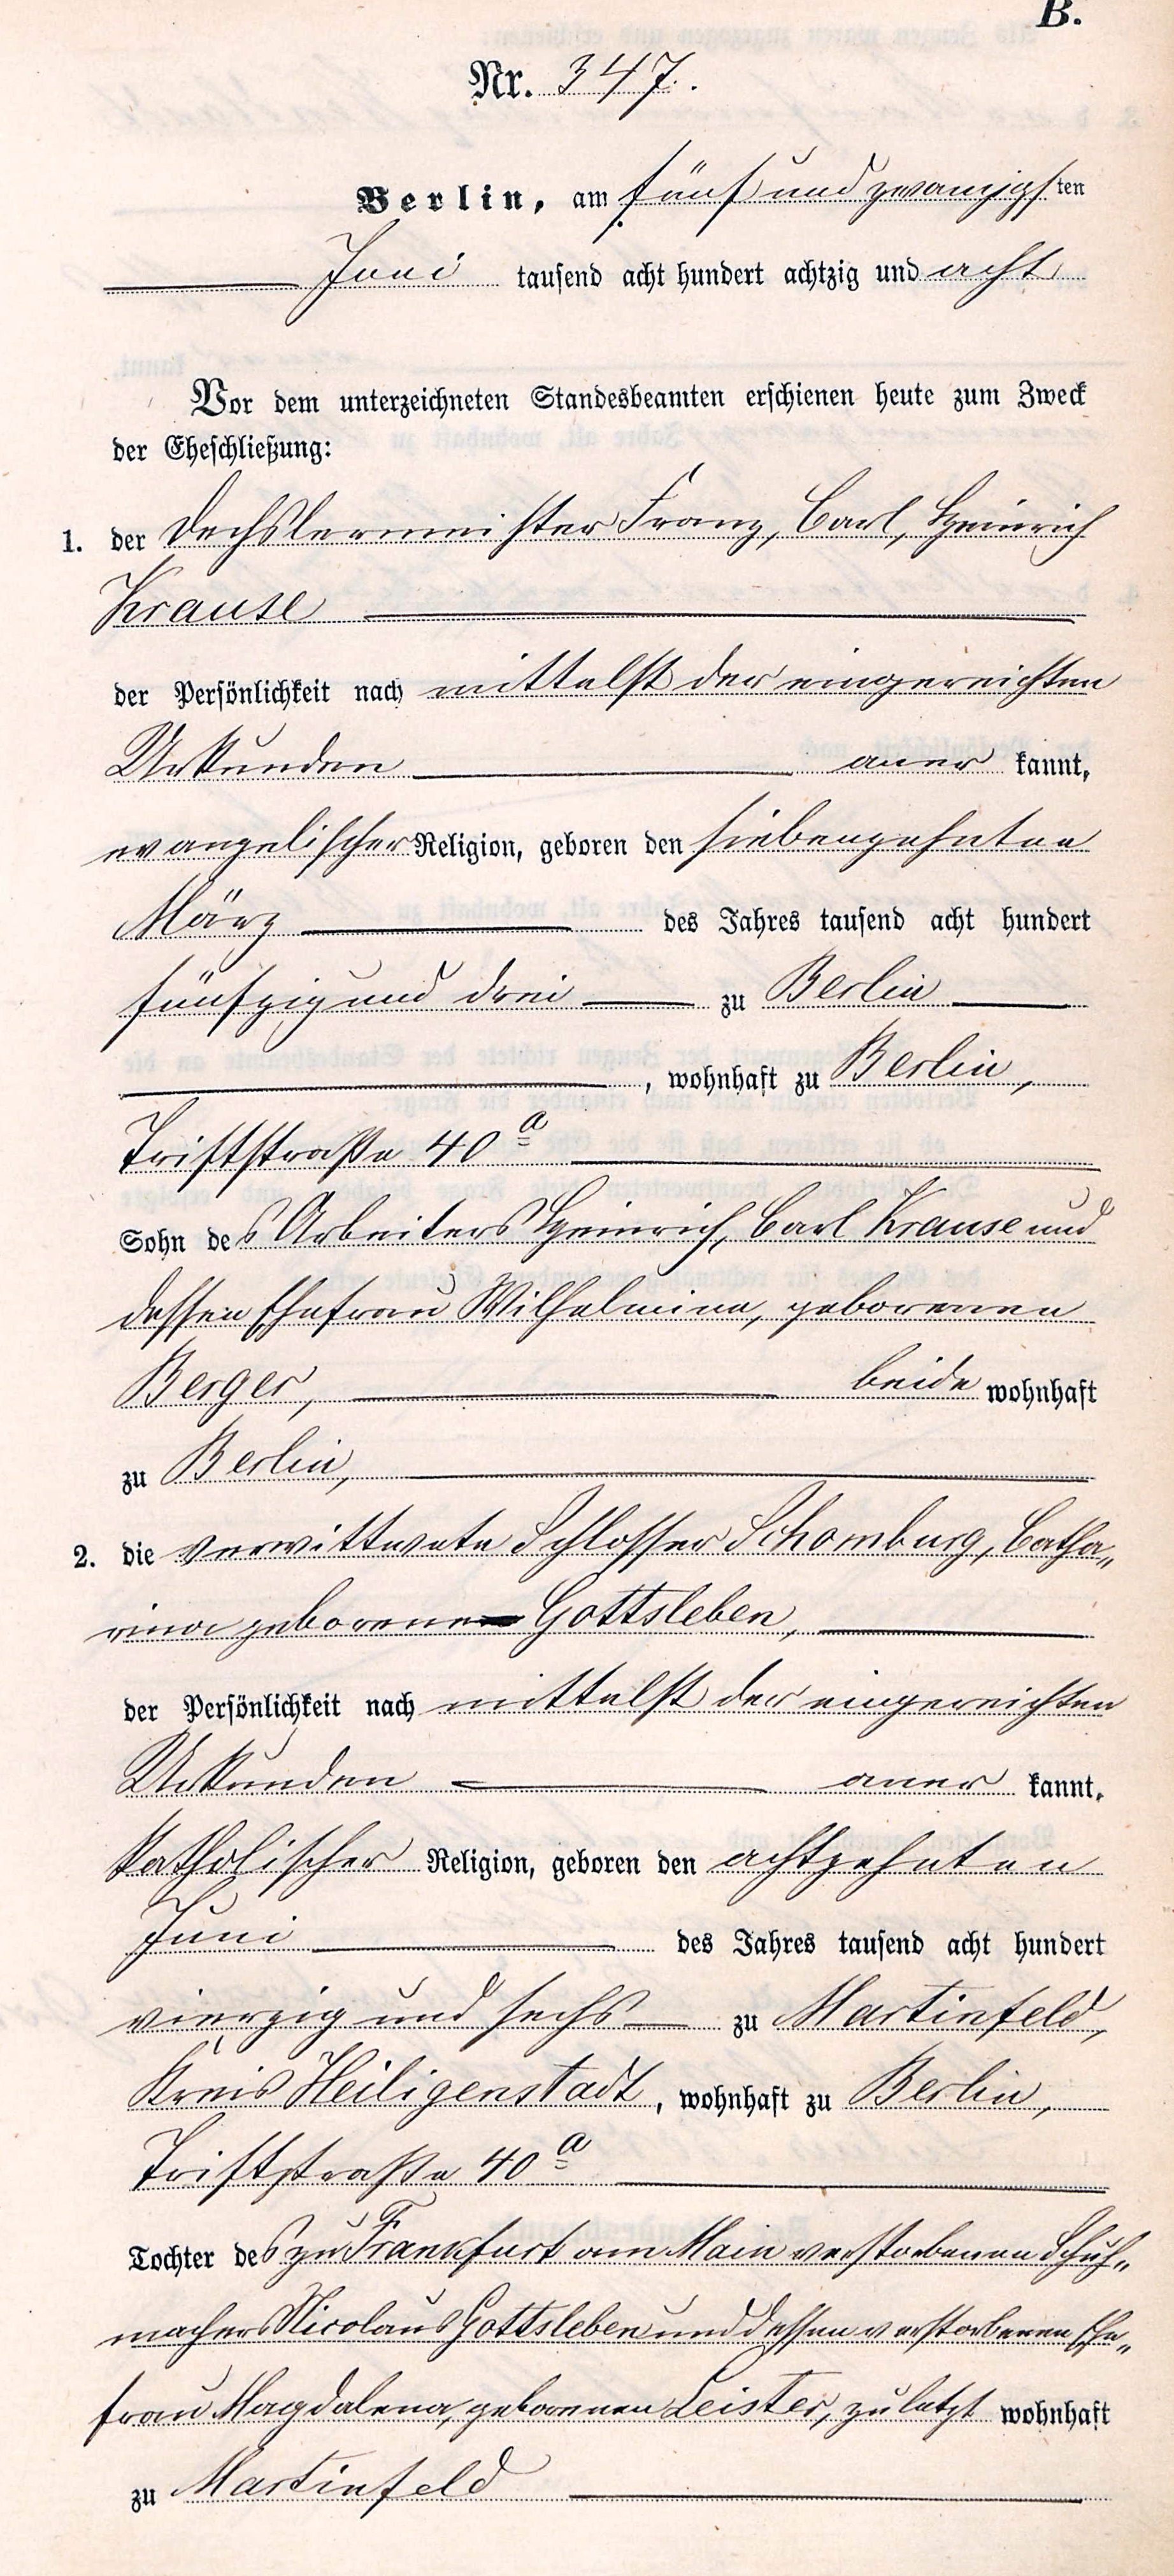 B.
Nr. 347.
Berlin, am fünf und zwanzigsten
Juni tausend acht hundert achtzig und acht
Vor dem unterzeichneten Standesbeamten erschienen heute zum Zweck
der Eheschließung:
1. der Dechslermeister Franz, Carl, Heinrich
Krause
der Persönlichkeit nach mittelst der eingereichten
Urkunden aner kannt,
evangelischer Religion, geboren den siebenzehnten
März des Jahres tausend acht hundert
fünfzig und drei zu Berlin
, wohnhaft zu Berlin,
Triftstraße 40 a
Sohn des Arbeiters Heinrich, Carl Krause und
dessen Ehefrau Wilhelmine, geborenen
Berger, beide wohnhaft
zu Berlin,
2. die verwittwete Schlosser Schomburg, Catha„
rina geborene Gottsleben,
der Persönlichkeit nach mittelst der eingereichten
Urkunden aner kannt,
katholischer Religion, geboren den achtzehnten
Juni des Jahres tausend acht hundert
vierzig und sechs zu Martinfeld,
Kreis Heiligenstadt, wohnhaft zu Berlin,
Triftstraße 40 a
Tochter des zu Frankfurt am Main verstorbenen Schuh„
machers Nicolaus Gottsleben und dessen verstorbenen Ehe„
frau Magdalena, geborenen Leister, zuletzt wohnhaft
zu Martinfeld